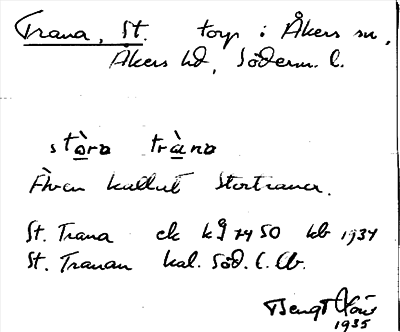 Trana, St. torp i Åkers sn,
Åkers hd, Söderm. l.
stòra tràna
Även kallat Stortranan.
St. Trana ek kg 7450 kb 1934
St. Tranan kal. Söd. l. Cb.
Bengt
1935